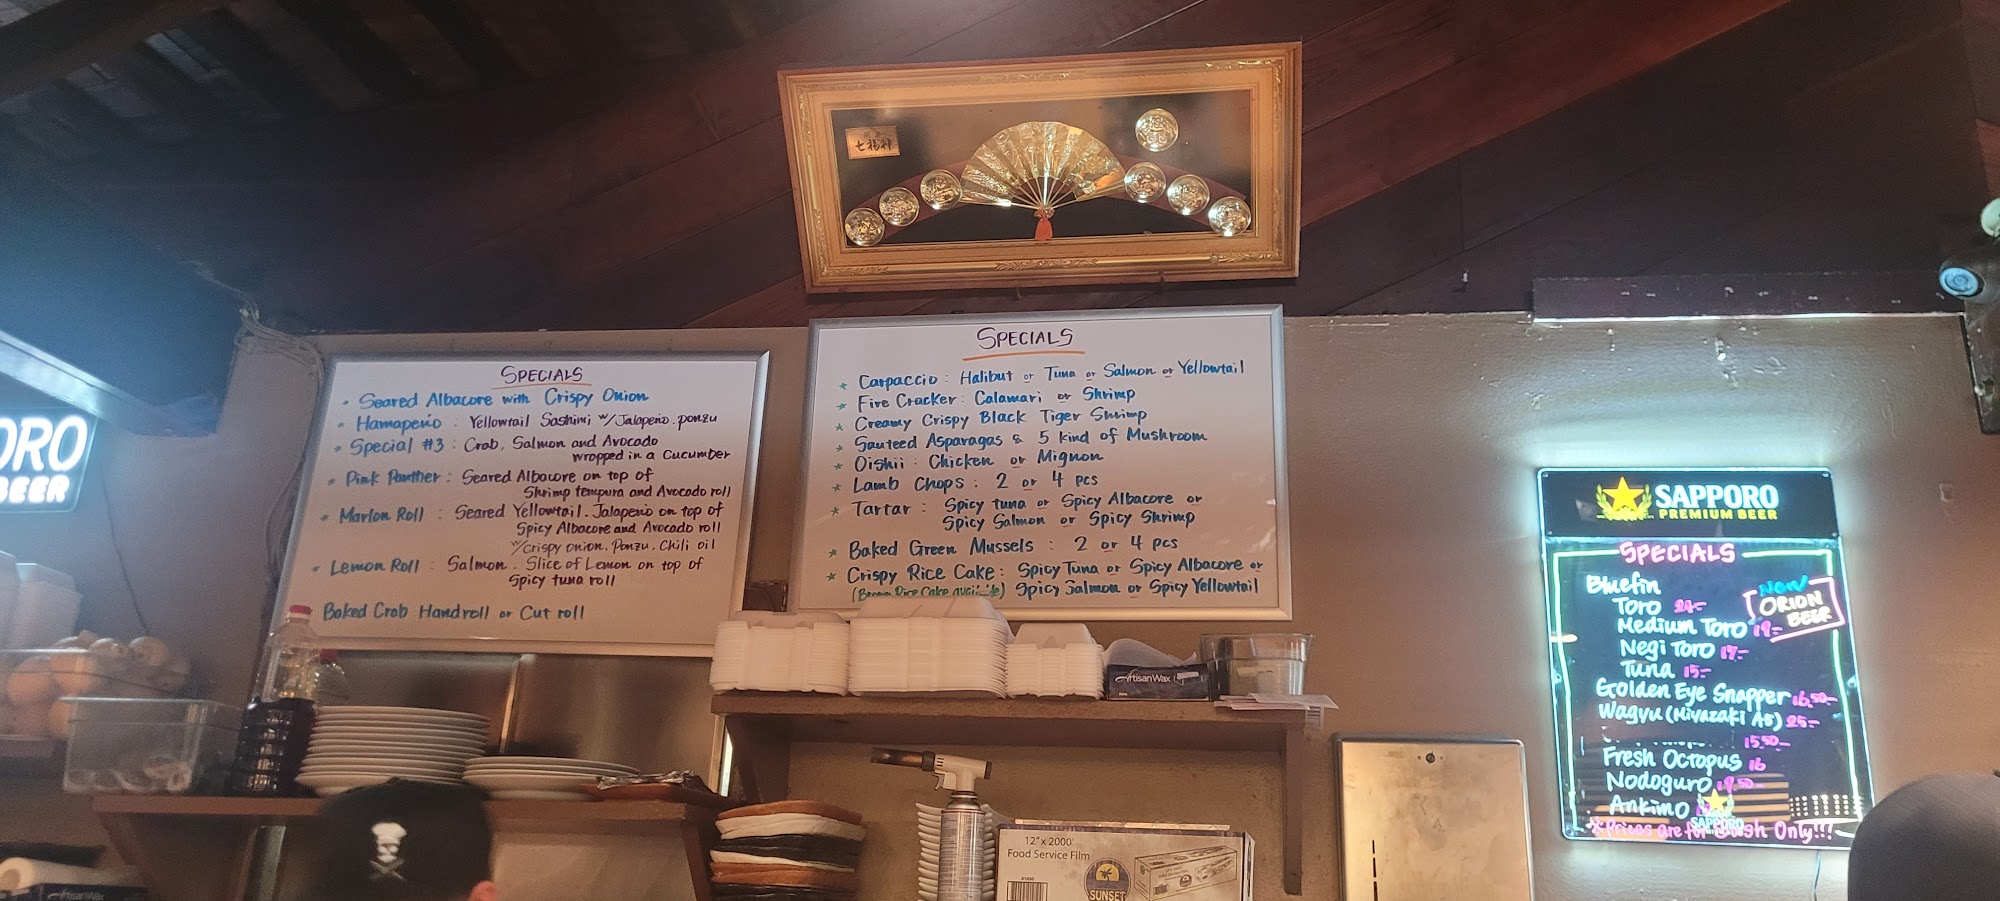 七福神
SPECIALS
Seared Albacore with Crispy Onion
Hamapeño : Yellowtail Sashimi w/Jalapeño.ponzu
Special #3 : Crab, Salmon and Avocado
wrapped in a Cucumber
Pink Panther : Seared Albacore on top of
Shrimp tempura and Avocado roll
Marlon Roll : Seared Yellowtail. Jalapeño on top of
Spicy Albacore and Avocado roll
w/crispy onion. Ponzu. Chili oil
Lemon Roll : Salmon. Slice of Lemon on top of
Spicy tuna roll
Baked Crab Handroll or Cut roll
SPECIALS
Carpaccio : Halibut or Tuna or Salmon or Yellowtail
Fire Cracker : Calamari or Shrimp
Creamy Crispy Black Tiger Shrimp
Sauteed Asparagas & 5 kind of Mushroom
Oishii : Chicken or Mignon
Lamb Chops : 2 or 4 pcs
Tartar : Spicy tuna or Spicy Albacore or
Spicy Salmon or Spicy Shrimp
Baked Green Mussels : 2 or 4 pcs
Crispy Rice Cake : Spicy Tuna or Spicy Albacore or
(Brown Rice Cake available) Spicy Salmon or Spicy Yellowtail
ORO
BEER
SAPPORO
PREMIUM BEER
SPECIALS
Bluefin
Toro 24.-
Medium Toro 19.-
Negi Toro 17.-
Tuna 15.-
Golden Eye Snapper 16.50-
Wagyu (Miyazaki A5) 25.-
15.50-
Fresh Octopus 16
Nodoguro 19.50-
Ankimo
*Prices are for Sush Only!!!
New
ORION
BEER
SAPPORO
ArtisanWax
12" x 2000'
Food Service Film
SUNSET
ArtisanWax